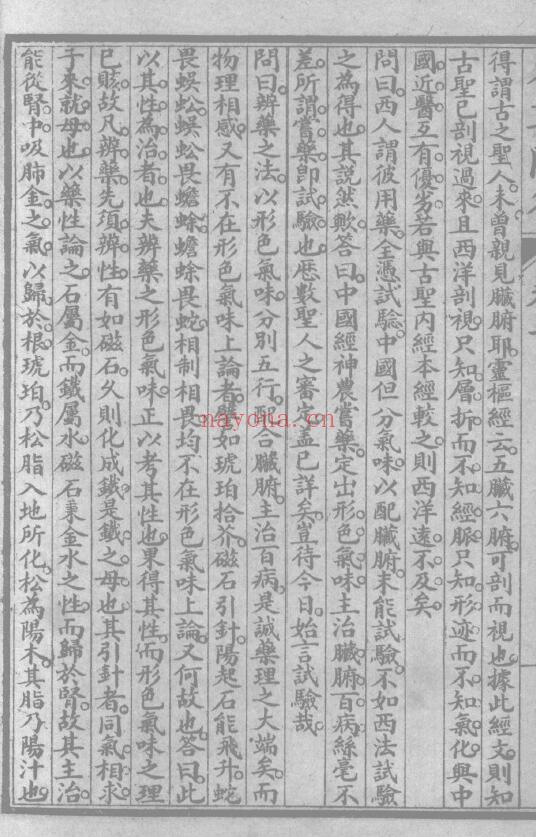 得謂古之聖人未曾親見臟腑耶靈樞經云五臟六腑可剖而視也據此經文則知
古聖已剖視過來且西洋剖視只知層折而不知經脈只知形迹而不知氣化與中
國近醫互有優劣若與古聖內經本經較之則西洋遠不及矣
問曰西人謂彼用藥全憑試驗中國但分氣味以配臟腑未能試驗不如西法試驗
之為得也其說然歟答曰中國經神農嘗藥定出形色氣味主治臟腑百病絲毫不
差所謂嘗藥卽試驗也歷數聖人之審定蓋已詳矣豈待今日始言試驗哉
問曰辨藥之法以形色氣味分別五行配合臟腑主治百病是誠藥理之大端矣而
物理相感又有不在形色氣味上論者譬如琥珀拾芥磁石引針陽起石能飛升蛇
畏蜈蚣蜈蚣畏蟾蜍蟾蜍畏蛇相制相畏均不在形色氣味上論又何故也答曰此
以其性為治者也夫辨藥之形色氣味正以考其性也果得其性而形色氣味之理
已賅故凡辨藥先須辨性有如磁石久則化成鐵是鐵之母也其引針者同氣相求
子來就母也以藥性論之石屬金而鐵屬水磁石秉金水之性而歸於腎故其主治
能從腎中吸肺金之氣以歸於根琥珀乃松脂入地所化松為陽木其脂乃陽汁也
nayona.cn